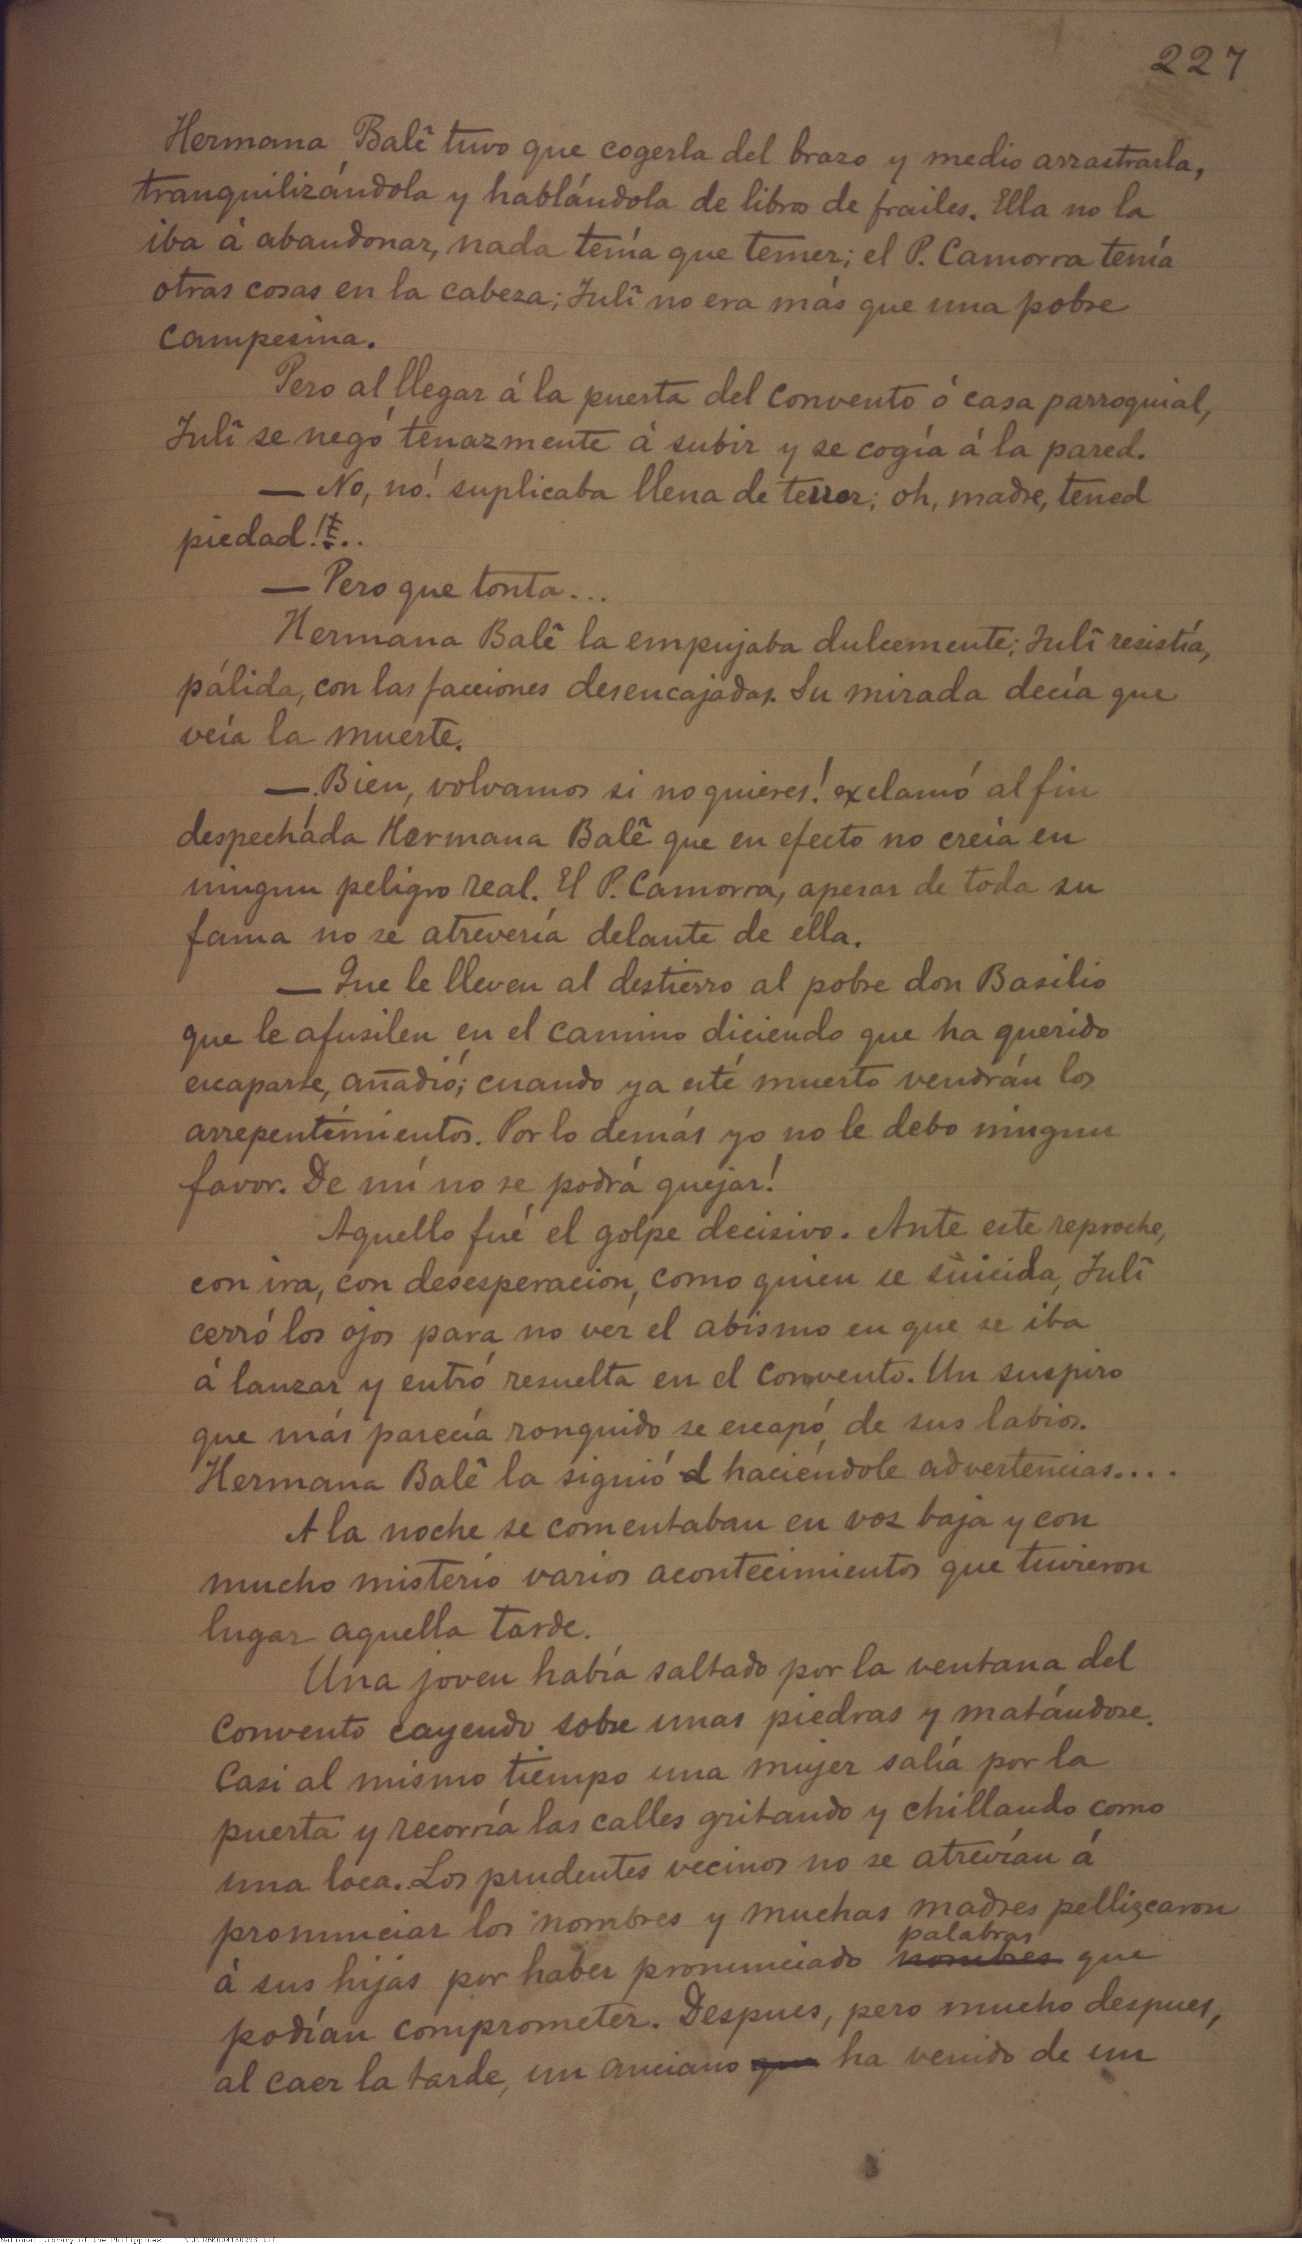 227
Hermana Balî tuvo que cogerla del brazo y medio arrastrarla,
tranquilizándola y hablándola de libros de frailes. Ella no la
iba á abandonar, nada tenía que temer; el P. Camorra tenía
otras cosas en la cabeza; Julî no era más que una pobre
campesina.
Pero al llegar á la puerta del convento ó casa parroquial,
Julî se negó tenazmente á subir y se cogía á la pared.
— No, no! suplicaba llena de terror; oh, madre, tened
piedad!...
— Pero que tonta...
Hermana Balî la empujaba dulcemente; Julî resistía,
pálida, con las facciones desencajadas. Su mirada decía que
veía la muerte.
— Bien, volvamos si no quieres! exclamó al fin
despechada Hermana Balî que en efecto no creía en
ningun peligro real. El P. Camorra, apesar de toda su
fama no se atrevería delante de ella.
— Que le lleven al destierro al pobre don Basilio
que le afusilen en el camino diciendo que ha querido
escaparse, añadió; cuando ya esté muerto vendrán los
arrepentimientos. Por lo demás yo no le debo ningun
favor. De mí no se podrá quejar!
Aquello fué el golpe decisivo. Ante este reproche,
con ira, con desesperacion, como quien se suicida, Julî
cerró los ojos para no ver el abismo en que se iba
á lanzar y entró resuelta en el convento. Un suspiro
que más parecía ronquido se escapó de sus labios.
Hermana Balî la siguió haciéndole advertencias....
A la noche se comentaban en voz baja y con
mucho misterio varios acontecimientos que tuvieron
lugar aquella tarde.
Una joven había saltado por la ventana del
convento cayendo sobre unas piedras y matándose.
Casi al mismo tiempo una mujer salía por la
puerta y recorría las calles gritando y chillando como
una loca. Los prudentes vecinos no se atrevían á
pronunciar los nombres y muchas madres pellizcaron
palabras
á sus hijas por haber pronunciado nombres que
podían comprometer. Despues, pero mucho despues,
al caer la tarde, un anciano que ha venido de un